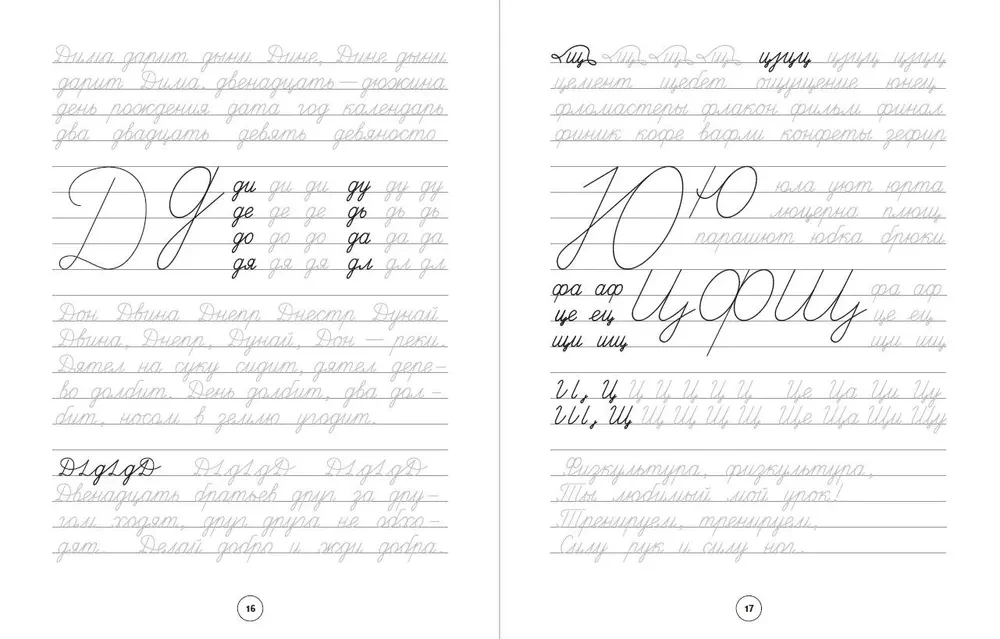 Дима дарит дыни Дине, Дине дыни
дарит Дима. двенадцать — дюжина
день рождения дата год календарь
два двадцать девять девяносто
Д д
ди ди ди ду ду ду
де де де дь дь дь
до до до да да да
дя дя дя дл дл дл
Дон Двина Днепр Днестр Дунай
Двина, Днепр, Дунай, Дон — реки.
Дятел на суку сидит, дятел дере-
во долбит. День долбит, два дол-
бит, носом в землю угодит.
Двенадцать братьев друг за дру-
гом ходят, друг друга не обхо-
дят. Делай добро и жди добра.
16
цемент щебет ощущение юнец
фломастеры флакон фильм финал
финик кофе вафли конфеты зефир
Ю ю
юла уют юрта
люцерна плющ
парашют юбка брюки
Ц ф Щ
фа аф фа аф
це ец це ец
щи ищ щи ищ
Ц Ц Ц Ц Ц Ц Це Ца Ци Цу
Щ Щ Щ Щ Щ Ще Ща Щи Щу
Физкультура, физкультура,
Ты любимый мой урок!
Тренируем, тренируем,
Силу рук и силу ног.
17